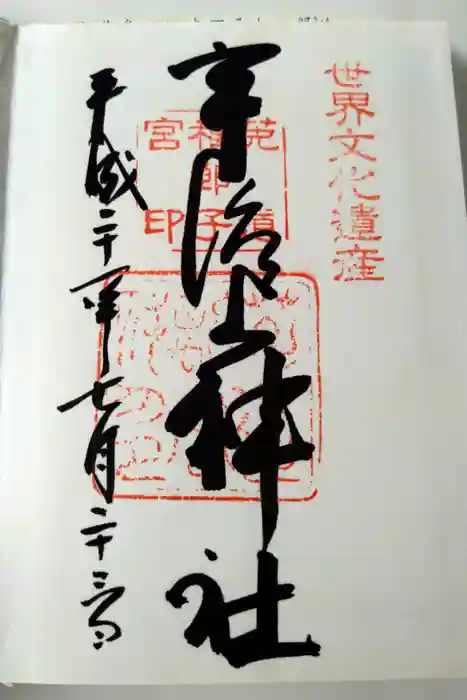 世界文化遺産
菟道
稚郎子
宮印
宇治上神社
平成二十一年七月二十三日